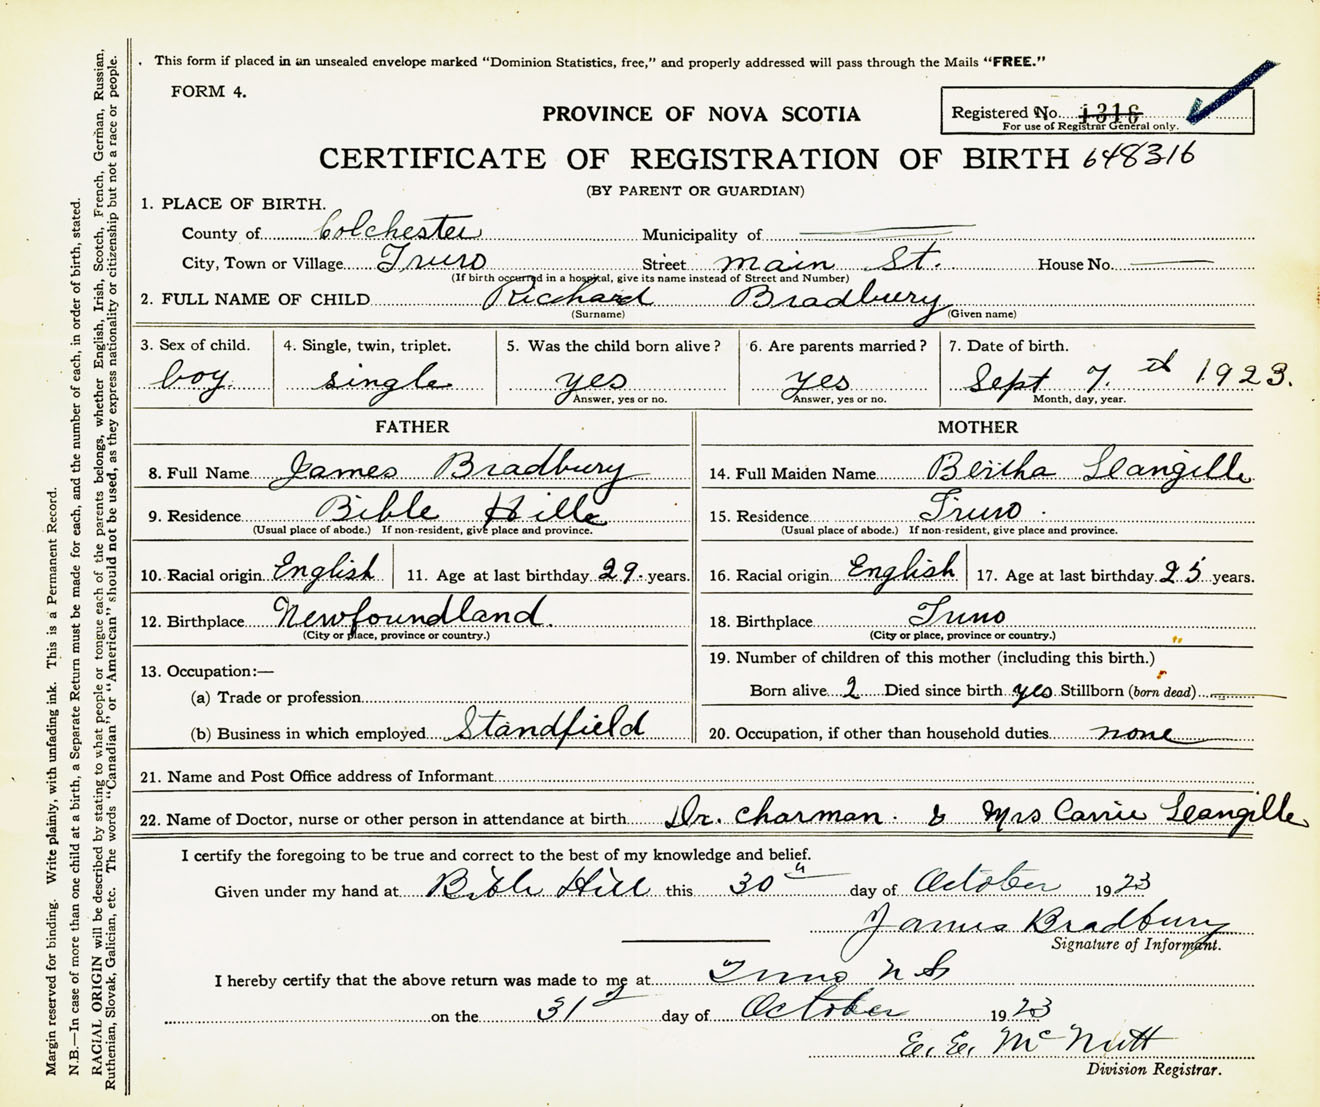 This form if placed in an unsealed envelope marked "Dominion Statistics, free," and properly addressed will pass through the Mails "FREE."
FORM 4.
PROVINCE OF NOVA SCOTIA
Registered No. 1316
For use of Registrar General only.
CERTIFICATE OF REGISTRATION OF BIRTH 648316
(BY PARENT OR GUARDIAN)
1. PLACE OF BIRTH.
County of Colchester Municipality of
City, Town or Village Truro Street Main St. House No.
(If birth occurred in a hospital, give its name instead of Street and Number)
2. FULL NAME OF CHILD Richard Bradbury
(Surname) (Given name)
3. Sex of child. 4. Single, twin, triplet. 5. Was the child born alive? 6. Are parents married? 7. Date of birth.
boy single yes yes Sept 7. th 1923.
Answer, yes or no. Answer, yes or no. Month, day, year.
FATHER MOTHER
8. Full Name James Bradbury 14. Full Maiden Name Bertha Leangille
9. Residence Bible Hill 15. Residence Truro
(Usual place of abode.) If non-resident, give place and province. (Usual place of abode.) If non-resident, give place and province.
10. Racial origin English 11. Age at last birthday 29 years. 16. Racial origin English 17. Age at last birthday 25 years.
12. Birthplace Newfoundland. 18. Birthplace Truro
(City or place, province or country.) (City or place, province or country.)
13. Occupation:— 19. Number of children of this mother (including this birth.)
(a) Trade or profession Born alive 2 Died since birth yes Stillborn (born dead)
(b) Business in which employed Standfield 20. Occupation, if other than household duties none
21. Name and Post Office address of Informant
22. Name of Doctor, nurse or other person in attendance at birth Dr. Charman. & Mrs Carrie Leangille
I certify the foregoing to be true and correct to the best of my knowledge and belief.
Given under my hand at Bible Hill this 30 day of October 1923
James Bradbury
Signature of Informant.
I hereby certify that the above return was made to me at Truro N S
on the 31 day of October 1923
E. E. McNutt
Division Registrar.
Margin reserved for binding. Write plainly, with unfading ink. This is a Permanent Record.
N.B.—In case of more than one child at a birth, a Separate Return must be made for each, and the number of each, in order of birth, stated.
RACIAL ORIGIN will be described by stating to what people or tongue each of the parents belongs, whether English, Irish, Scotch, French, German, Russian,
Ruthenian, Slovak, Galician, etc. The words "Canadian" or "American" should not be used, as they express nationality or citizenship but not a race or people.